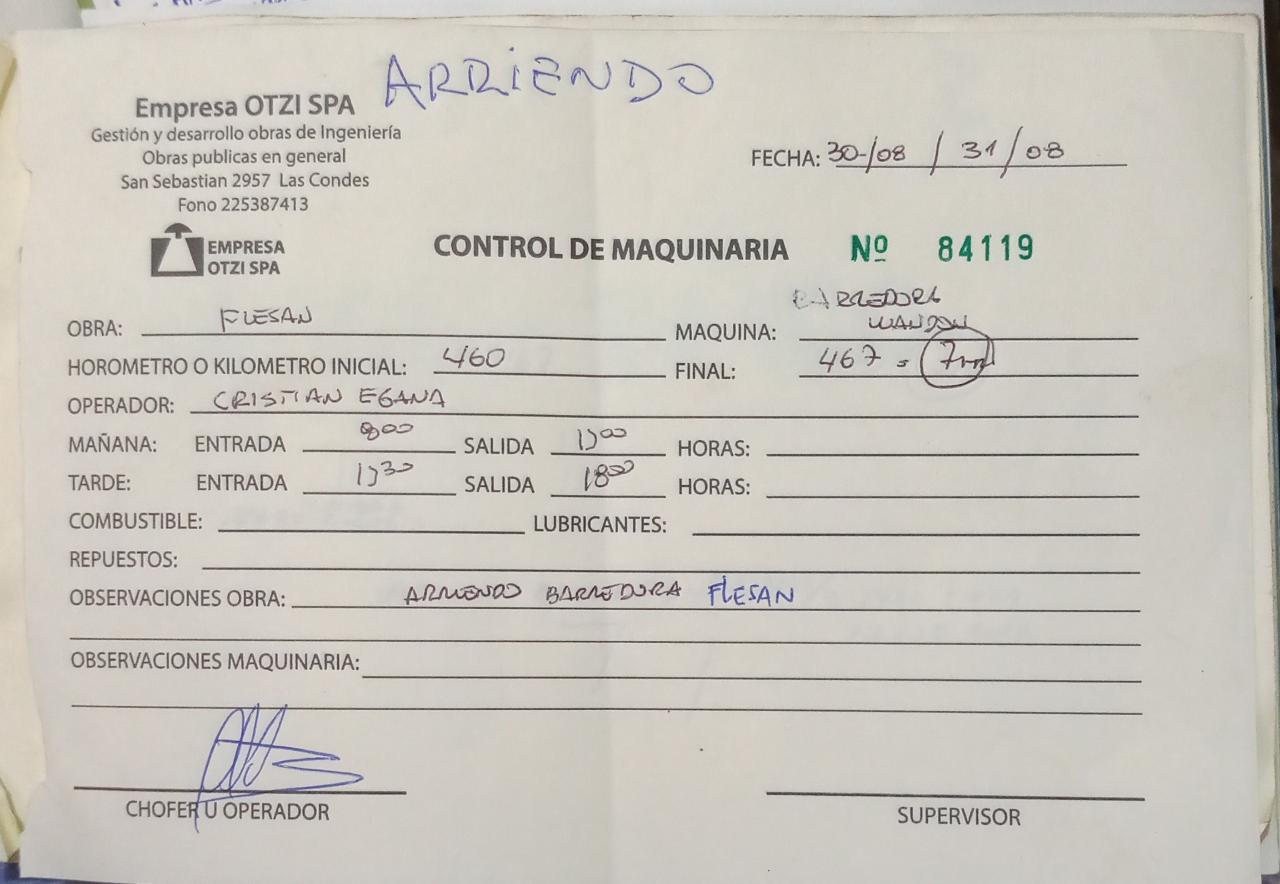 ARRIENDO
Empresa OTZI SPA
Gestión y desarrollo obras de Ingeniería
Obras publicas en general
San Sebastian 2957 Las Condes
Fono 225387413
FECHA: 30-/08 / 31/08
EMPRESA
OTZI SPA
CONTROL DE MAQUINARIA Nº 84119
BARREDORA
OBRA: FLESAN MAQUINA:
HOROMETRO O KILOMETRO INICIAL: 460 FINAL: 467 =
OPERADOR: CRISTIAN EGANA
MAÑANA: ENTRADA 800 SALIDA 1300 HORAS:
TARDE: ENTRADA 1330 SALIDA 1800 HORAS:
COMBUSTIBLE: LUBRICANTES:
REPUESTOS:
OBSERVACIONES OBRA: ARRIENDO BARREDORA FLESAN
OBSERVACIONES MAQUINARIA:
CHOFER U OPERADOR
SUPERVISOR